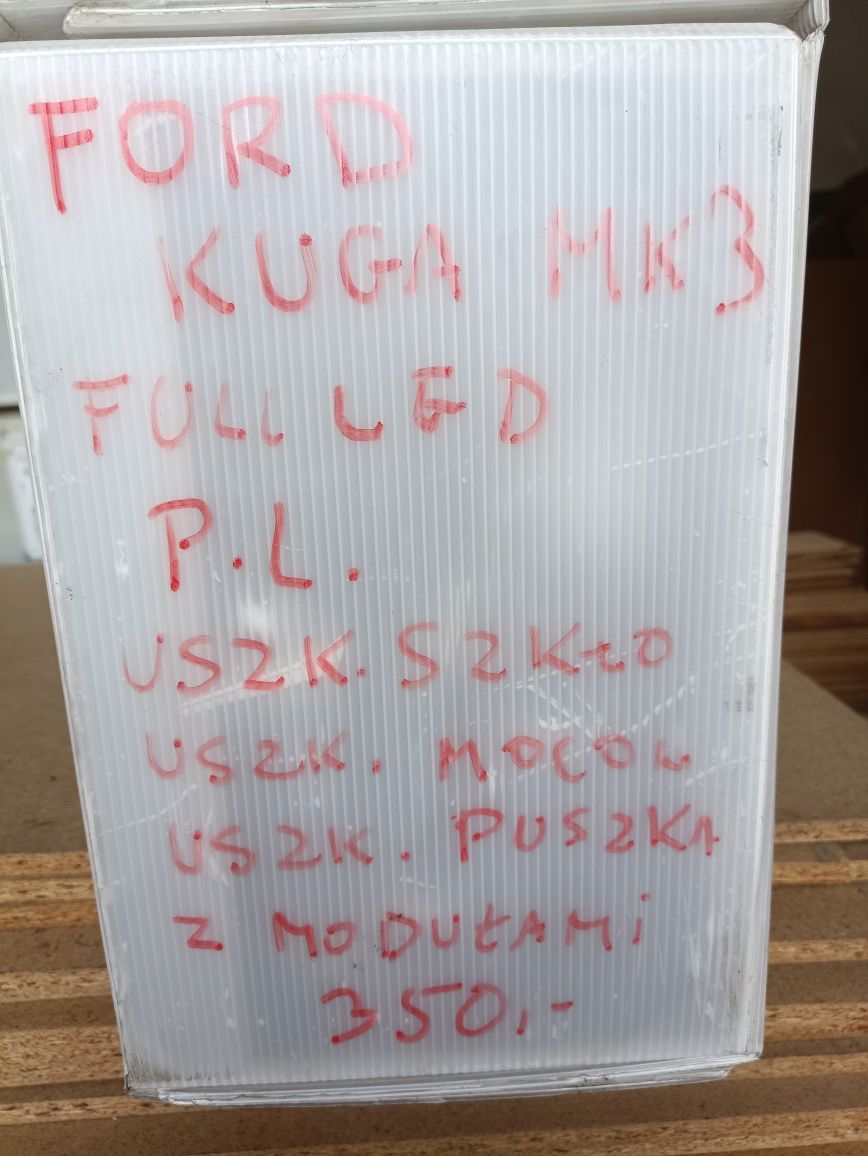 FORD
KUGA MK3
FULL LED
P.L.
USZK. SZKŁO
USZK. MOCOW
USZK. PUSZKA
Z MODUŁAMi
350,-